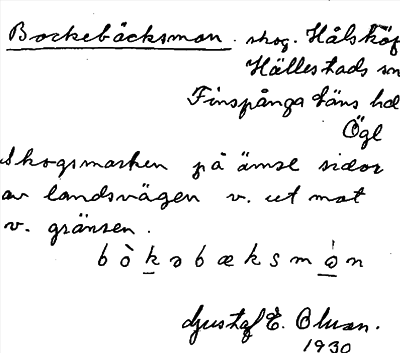 Bockebäcksmon. skog. Hålsköf
Hällestads sn
Finspånga läns hd
Ögl
Skogsmarken på ömse sidor
av landsvägen v. ut mot
v. gränsen.
b ò k ə b æ k s m ò n
Gustaf E. Olsson.
1930